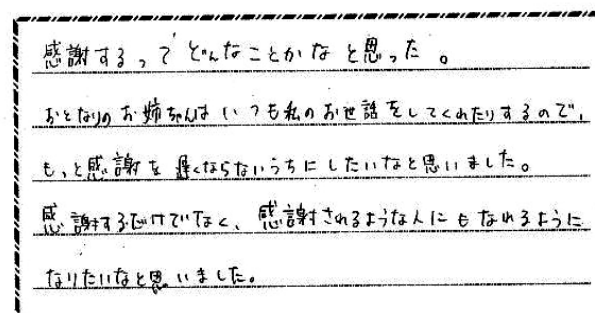 感謝するってどんなことかなと思った。
おとなりのお姉ちゃんはいつも私のお世話をしてくれたりするので、
もっと感謝を遅くならないうちにしたいなと思いました。
感謝するだけでなく、感謝されるような人にもなれるように
なりたいなと思いました。